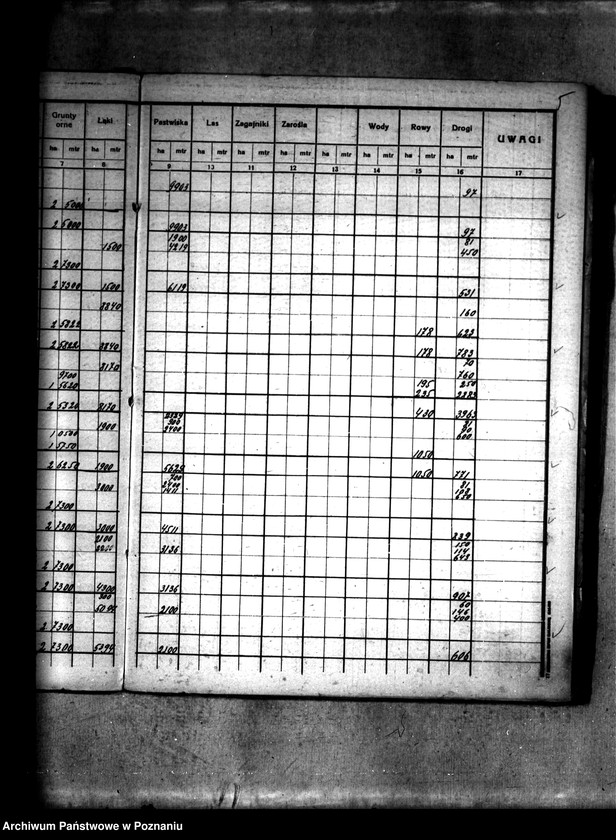 Grunty orne Łąki Pastwiska Las Zagajniki Zarośla Wody Rowy Drogi UWAGI
ha mtr ha mtr ha mtr ha mtr ha mtr ha mtr ha mtr ha mtr ha mtr ha mtr
7 8 9 13 11 12 13 14 15 16 17
9903 97
2 5000
2 5000 9903 97
1900 81
1500 4219 450
2 7300
2 7300 1500 6119 531
3840 160
2 5822 178 623
2 5822 3840 178 783
3170 70
9700 760
1 5620 195 250
235 2883
2 5320 3170 430 3963
2829 81
1900 300 90
1 0500 2400 600
1 5750 1050
2 6250 1900 5629 1050 771
700 81
3000 2400
1411 650
2 7300
2 7300 3000 4511
2100 150
3136 114
643
2 7300
2 7300 4300 3136 907
300 60
5094 2100 146
400
2 7300
2 7300 5294 2100 606
Archiwum Państwowe w Poznaniu